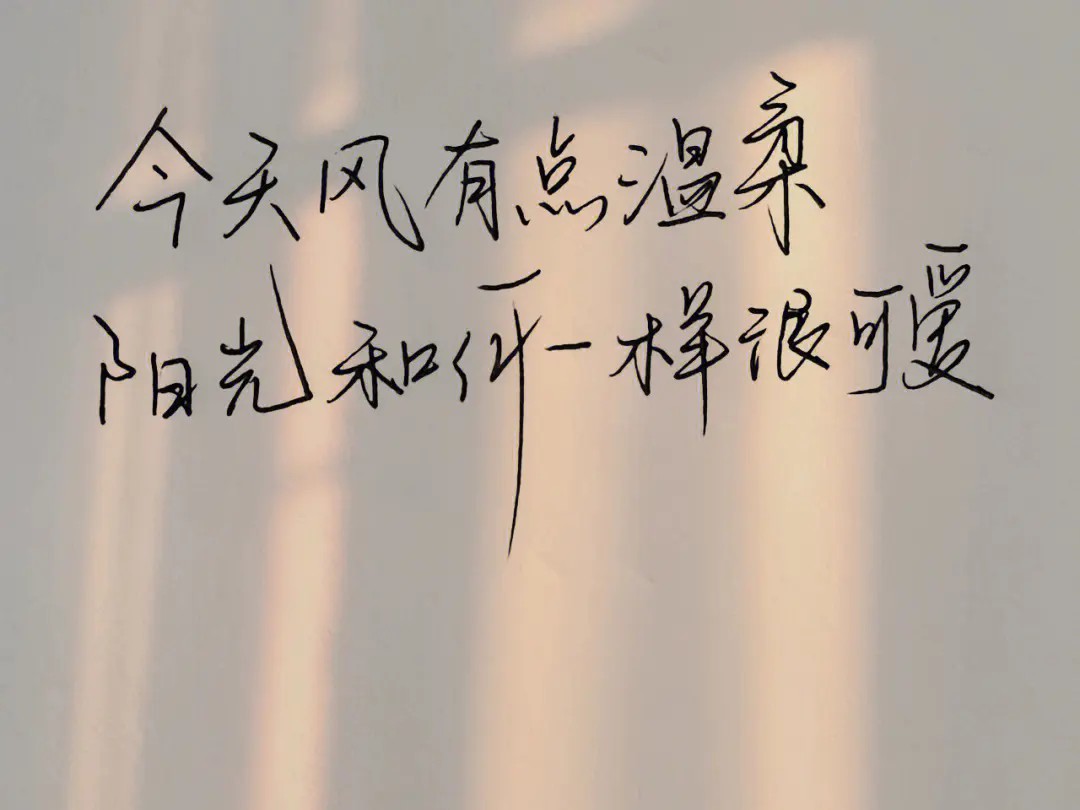 今天风有点温柔
阳光和你一样很可爱